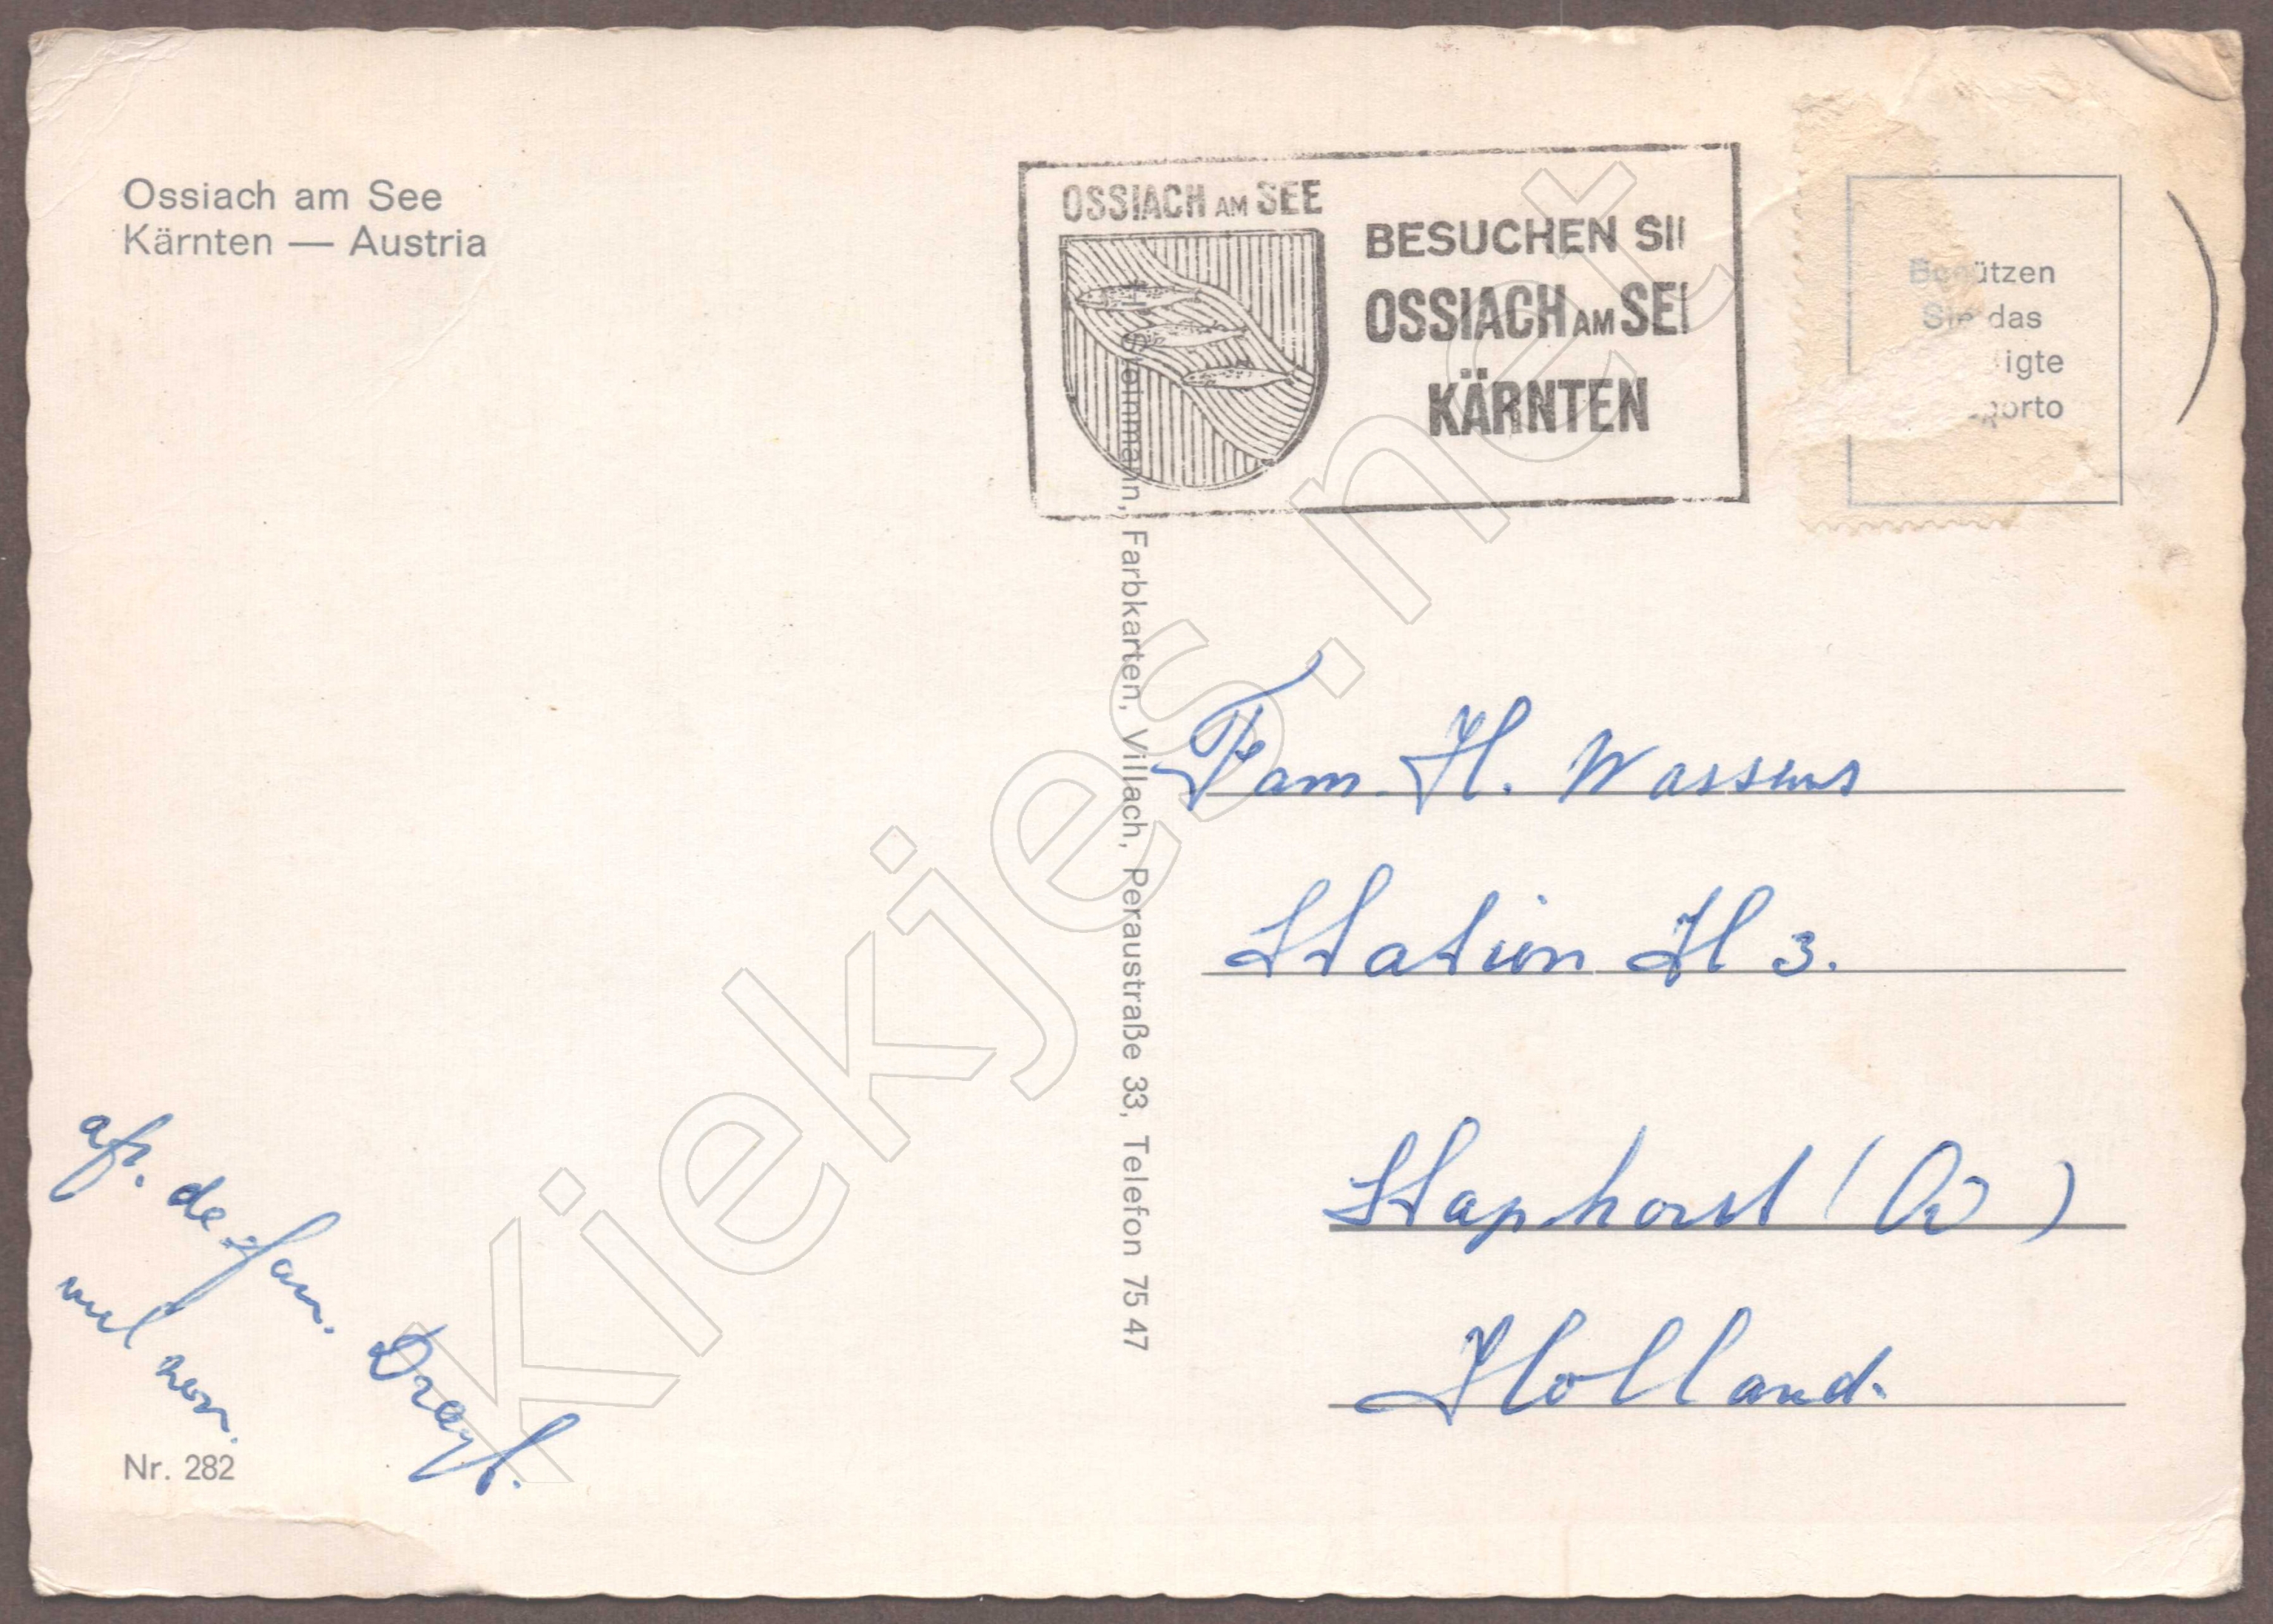 Ossiach am See
Kärnten — Austria
OSSIACH AM SEE
BESUCHEN SI
OSSIACH AM SE
KÄRNTEN
ützen
Sie das
igte
porto
Steinmann, Farbkarten, Villach, Peraustraße 33, Telefon 75 47
Fam. H. Wassens
Station H 3.
Staphorst (O)
Holland.
afz. de fam. Dragt.
Nr. 282
kiekjes.net